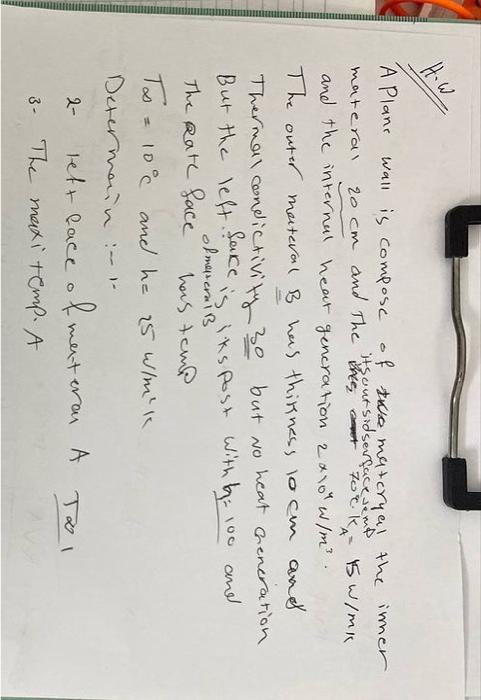 H.W
A plane wall is compose of two materyal the inner
its outsid surface temp
material 20 cm and The 70°C K A = 15 W/mk
and the internal heat generation 2x10⁴ W/m³.
The outer material B has thikness 10 cm and
Thermal condictivity 30 but no heat Generation
But the left face is ixspost with h = 100 and
of material B
The Rate face has temp
T∞ = 10°C and h = 25 W/m²k
Determain :- 1-
2- left face of material A T∞1
3- The maxi temp. A